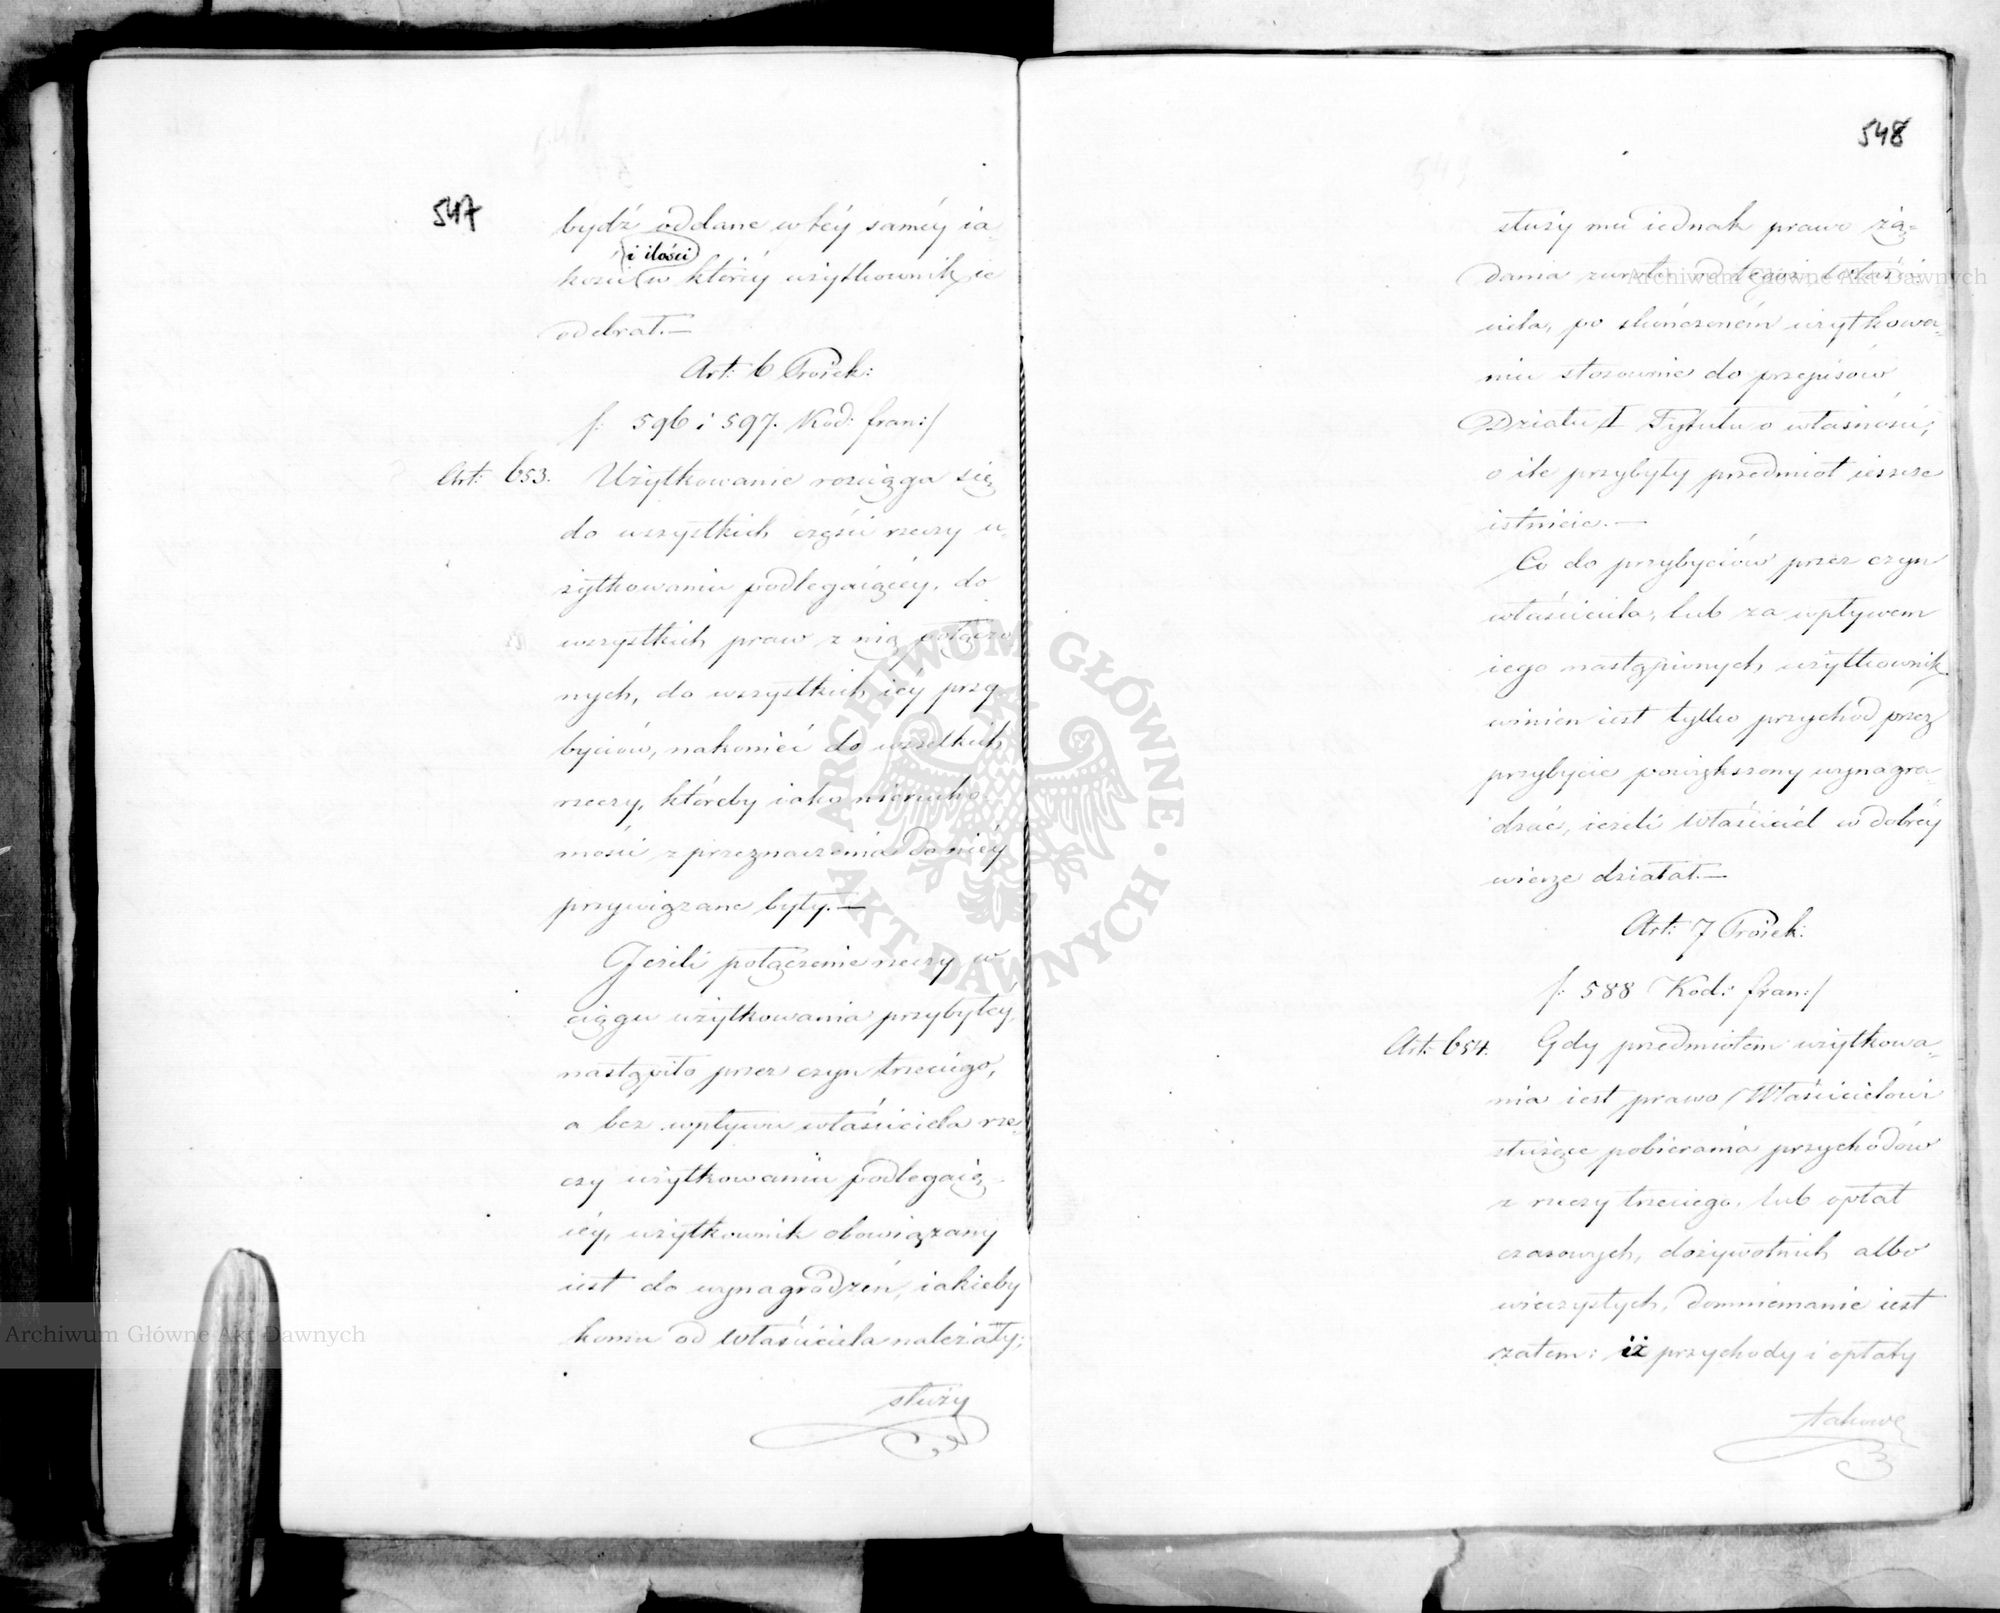 547
bydź oddane w téy saméy ia-
i ilości
kości w któréy użytkownik ie
odebrał.—
Art: 6 Proiek:
/: 596 i 597. Kod: fran:/
Art: 653. Użytkowanie rozciąga się
do wszystkich części rzeczy u-
żytkowaniu podlegaiącéy, do
wszystkich praw z nią połączo
nych, do wszystkich iéy przy
byciów, nakoniec do wszelkich
rzeczy, któreby iako nierucho-
mości z przeznaczenia do niéy
przywiązane były.—
Jeżeli połączenie rzeczy w
ciągu użytkowania przybyłéy,
nastąpiło przez czyn trzeciego,
a bez wpływu właściciela rze-
czy użytkowaniu podlegaią-
céy, użytkownik obowiązany
iest do wynagrodzeń, iakieby
komu od Właściciela należały;
służy
548
służy mu iednak prawo żą-
dania zwrotu od tegoż właści-
ciela, po skończoném użytkowa-
niu stosownie do przepisów
Działu I Tytułu o własności;
o ile przybyły przedmiot ieszcze
istnieie.—
Co do przybyciów przez czyn
właściciela, lub za wpływem
iego nastąpionych, użytkownik
winien iest tylko przychód przez
przybycie powiększony wynagra-
dzać, ieżeli Właściciel w dobréy
wierze działał.—
Art: 7 Proiek:
/: 588 Kod: fran:/
Art: 654. Gdy przedmiotem użytkowa-
nia iest prawo Właścicielowi
służące pobierania przychodów
z rzeczy trzeciego, lub opłat
czasowych, dożywotnich albo
wieczystych, domniemanie iest
zatem: iż przychody i opłaty
takowe
Archiwum Główne Akt Dawnych
Archiwum Główne Akt Dawnych
ARCHIWUM GŁÓWNE · AKT DAWNYCH ·